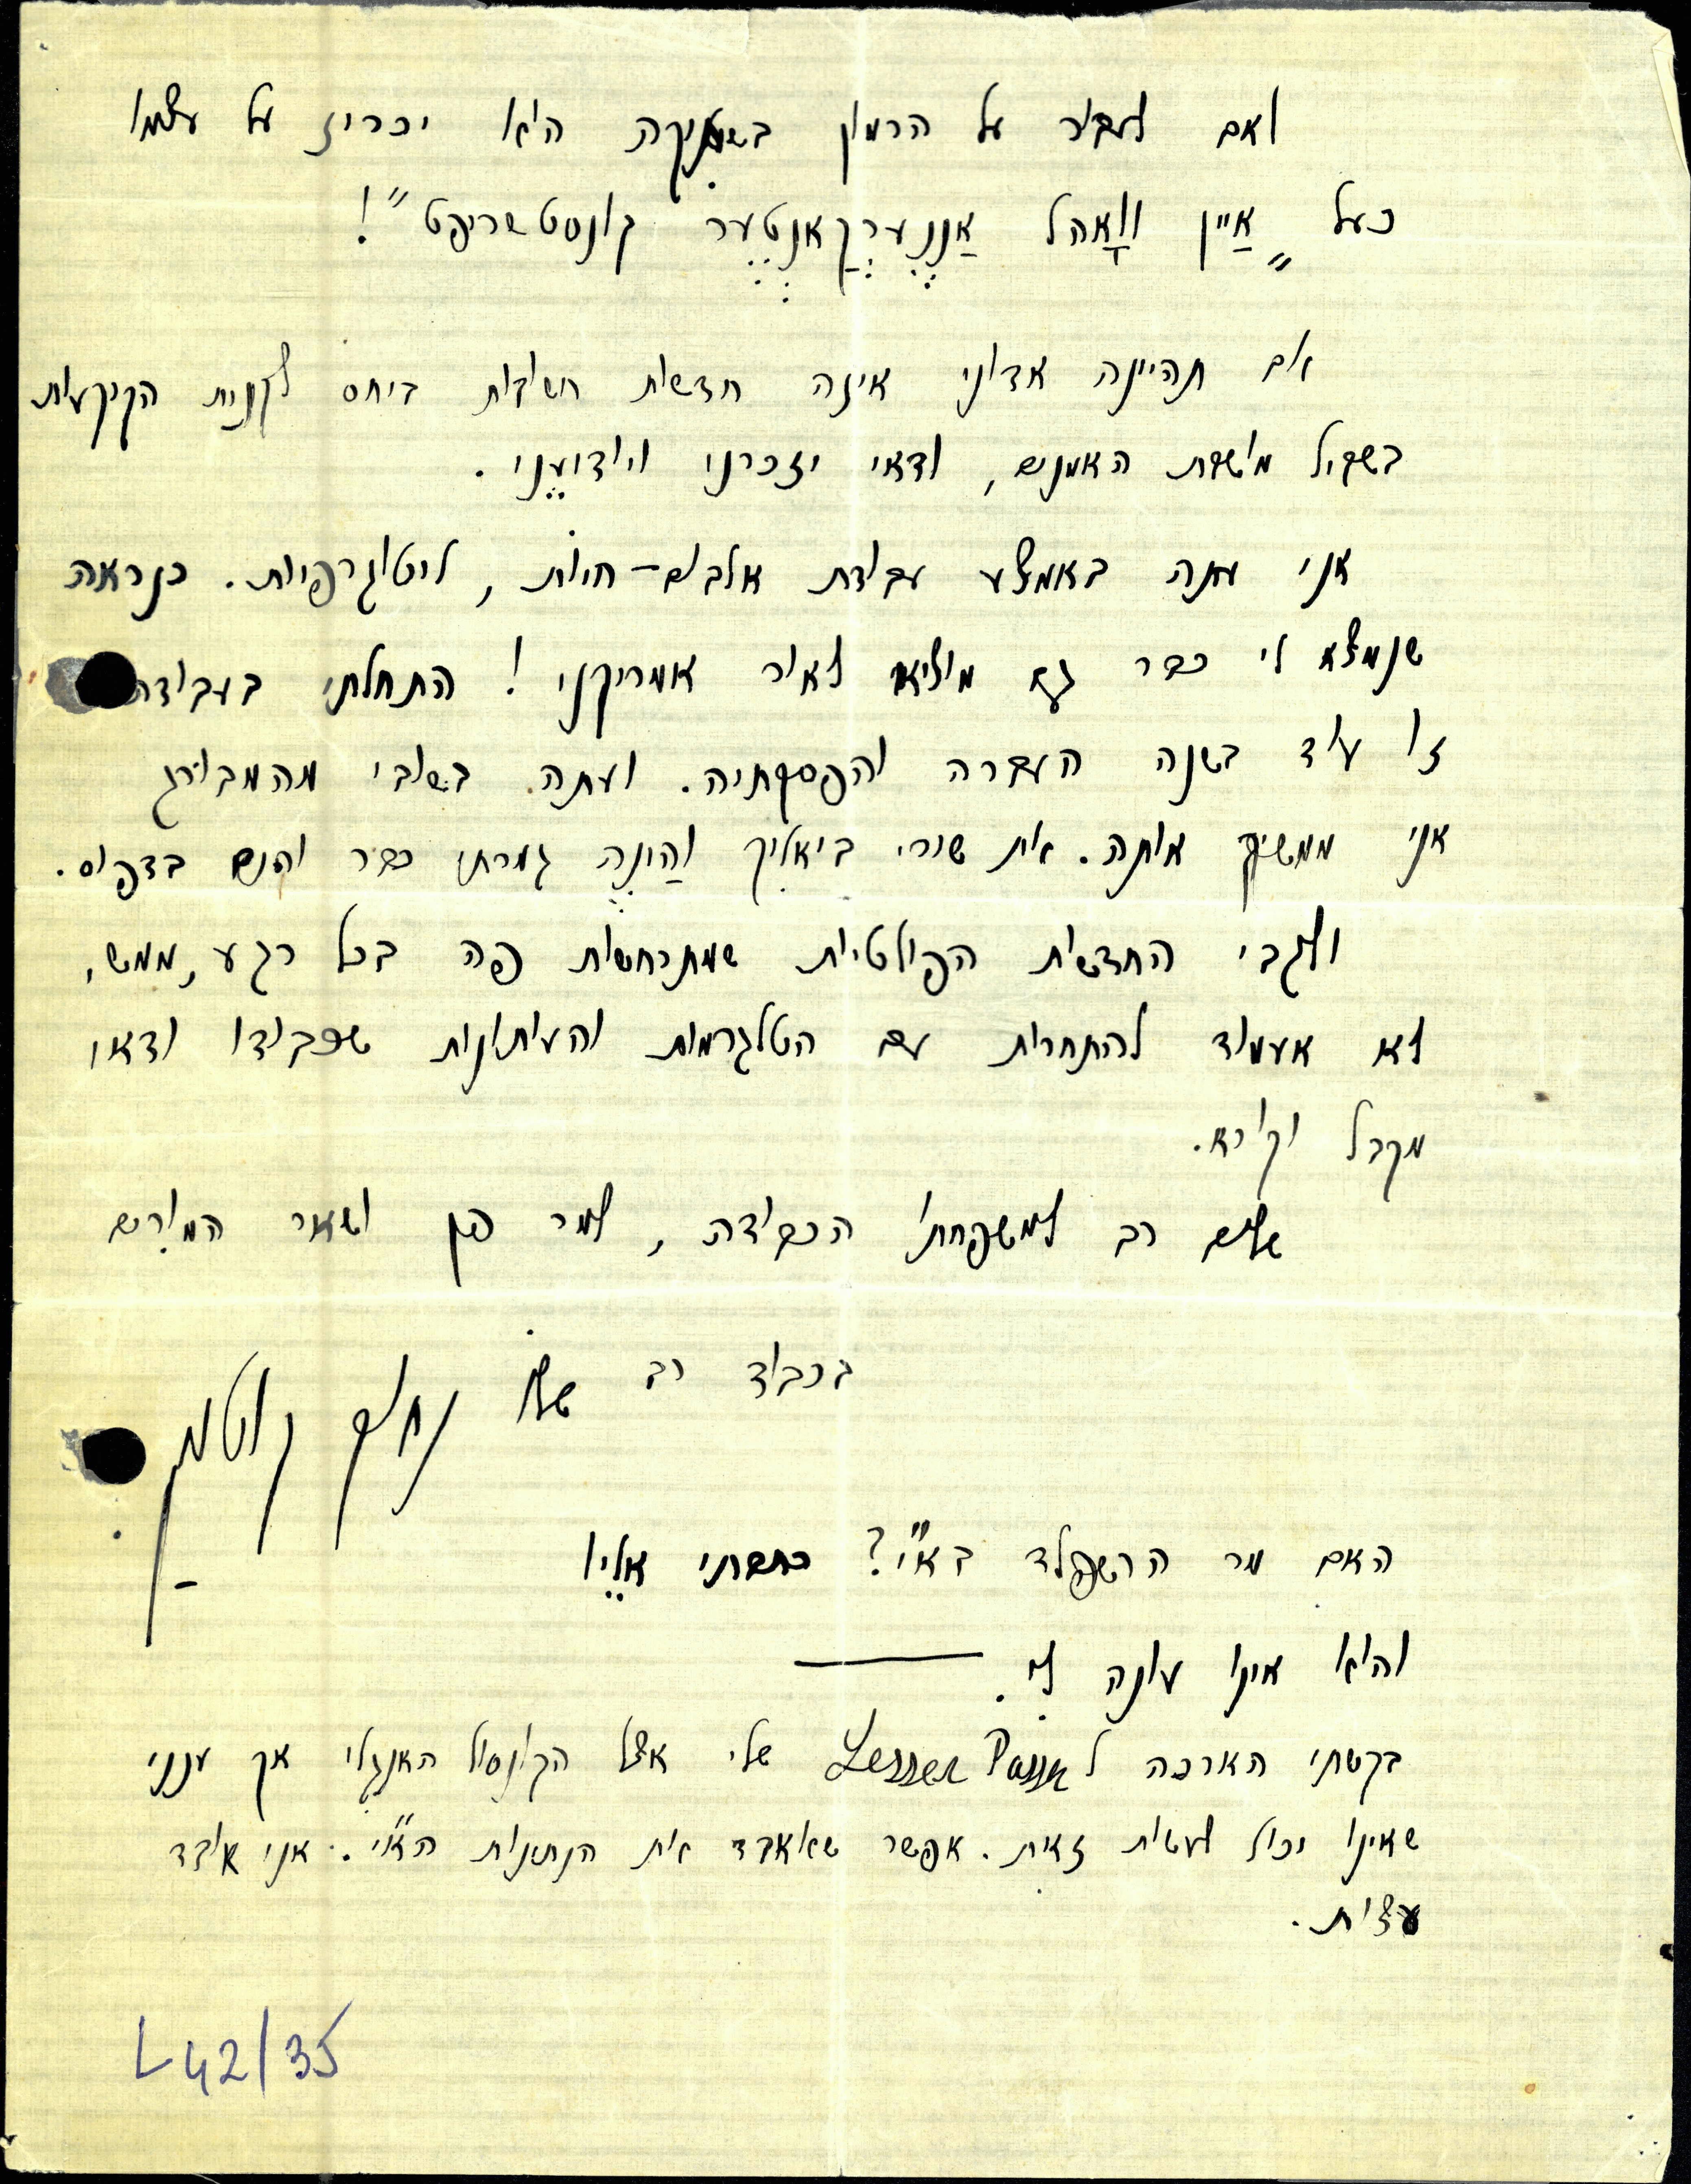 ואם לעבור על הרמון בשתיקה הוא יכריז על עצמו
כעל „אַיין וואָהל אַננֶערְקַאנְטֶער קונסטשריפט"!
אם תהיינה אדוני איזה חדשות חשובות ביחס לקנית הקרקעות
בשביל מושבת האמנים, ודאי יזכרנו ויודיעֵני.
אני עתה באמצע עבודת אלבום-חיות, ליטוגרפיות. כנראה
שנמצא לי כבר גם מוציא לאור אמריקני! התחלתי בעבודה
זו עוד בשנה העברה והפסקתיה. ועתה בשובי מהמבורג
אני ממשיך אותה. את שירי ביאליק וַהיונֶה גמרתי כבר והנם בדפוס.
ולגבי החדשות הפוליטיות שמתרחשות פה בכל רגע, ממש,
לא אעמוד להתחרות עם הטלגרמות והעיתונות שכבודו ודאי
מקבל וקורא.
שלום רב למשפחתו הכבודה, למר פן ושאר המורים
בכבוד רב שלו
האם מר הרשפלד בא"י? כתבתי אלֵיו
והוא אינו עונה לי.
בקשתי הארכה ל Lesser Passer שלי אצל הקונסול האנגלי אך ענני
שאינו יכול לעשות זאת. אפשר שאאבד את הנתינות הא"י. אני אובד
עצות.
L42/35